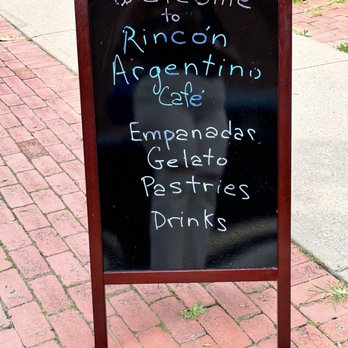 Welcome
to
Rincón
Argentino
Café
Empanadas
Gelato
Pastries
Drinks